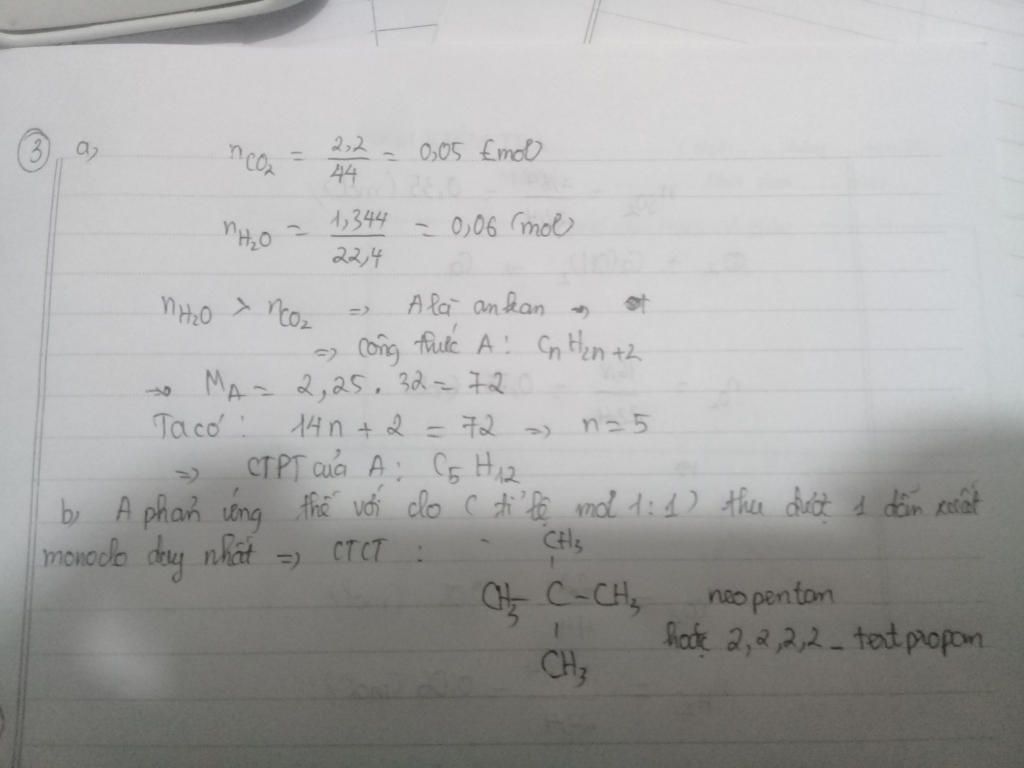 3 a, nCO2 = 2,2/44 = 0,05 (mol)
nH2O = 1,344/22,4 = 0,06 (mol)
nH2O > nCO2 => A là ankan =>
=> Công thức A : CnH2n+2
=> MA = 2,25 . 32 = 72
Ta có : 14n + 2 = 72 => n = 5
=> CTPT của A : C5H12
b, A phản ứng thế với clo ( tỉ lệ mol 1 : 1) thu được 1 dẫn xuất
monoclo duy nhất => CTCT :
CH3
CH3 - C - CH3 neopentan
hoặc 2,2,2,2 - tert propan
CH3